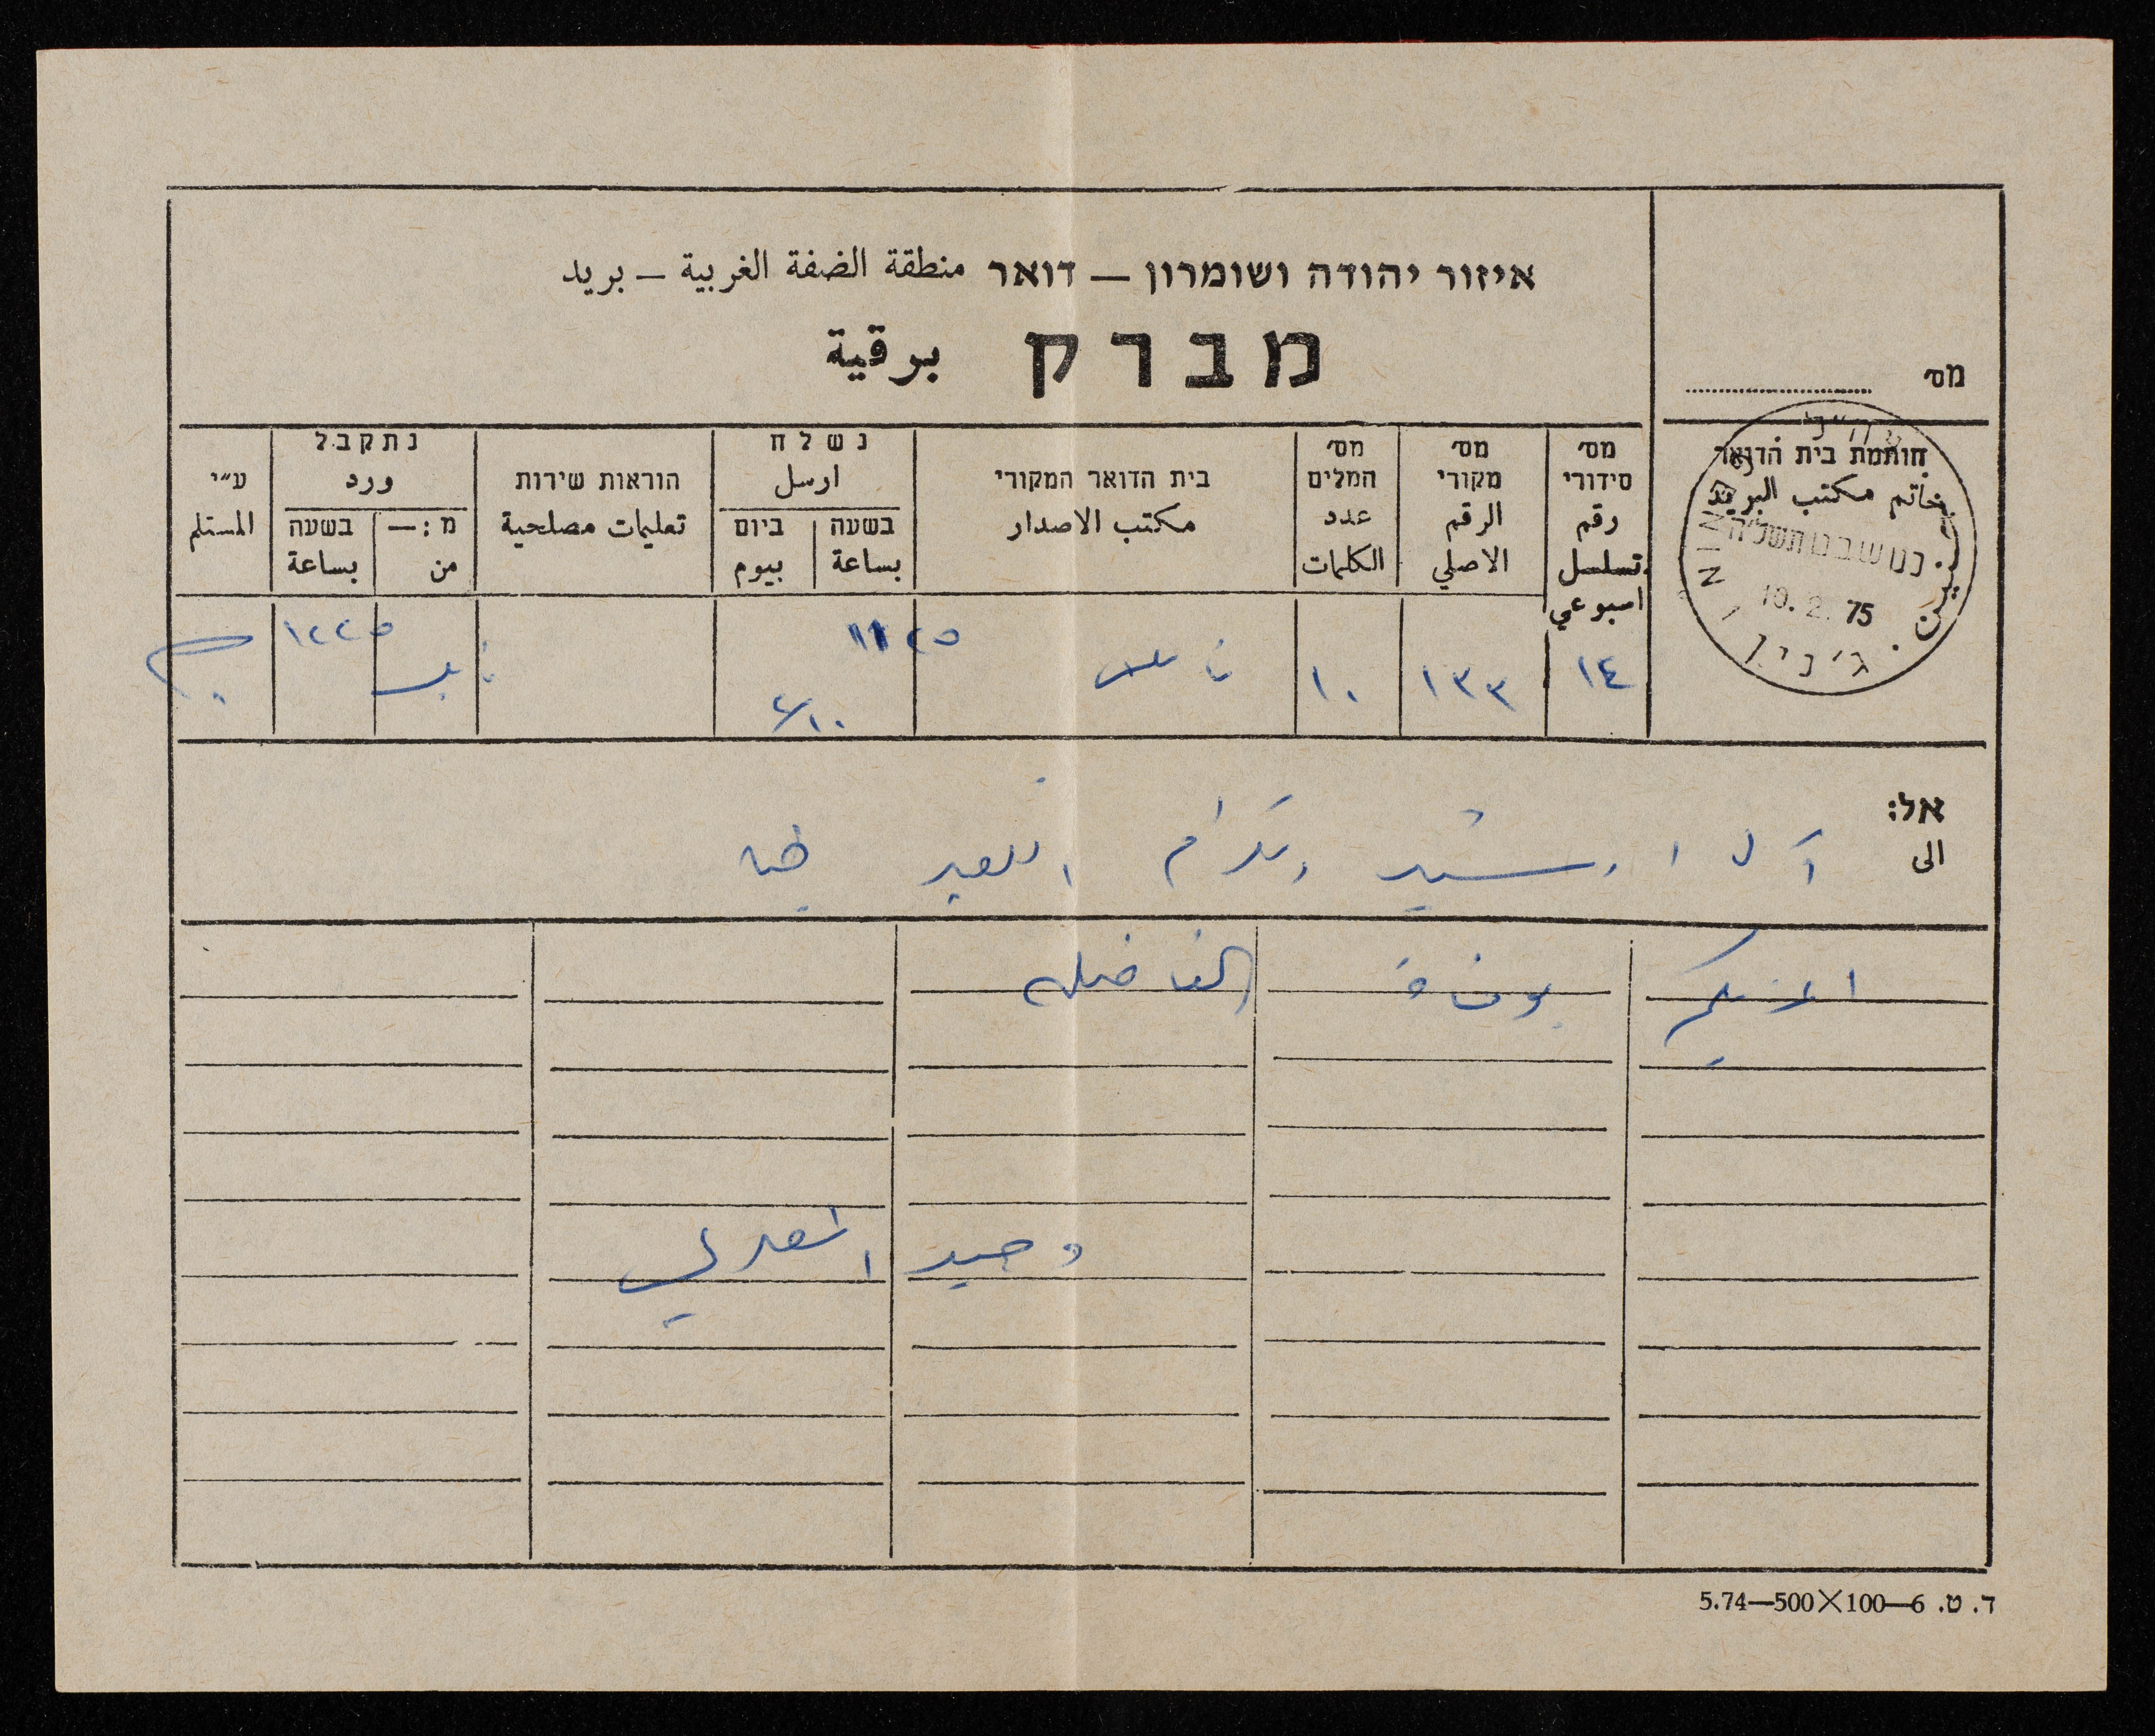 איזור יהודה ושומרון – דואר منطقة الضفة الغربية – بريد
מברק برقية
מס׳
חותמת בית הדואר
خاتم مكتب البريد
כט שבט תשל״ה
10.2.75
جنين
ג׳נין
JENIN
מס׳ סידורי رقم تسلسل اسبوعي
מס׳ מקורי الرقم الاصلي
מס׳ המלים عدد الكلمات
בית הדואר המקורי مكتب الاصدار
נשלח ارسل
בשעה بساعة
ביום بيوم
הוראות שירות تعليمات مصلحية
נתקבל ورد
מ:– من
בשעה بساعة
ע״י المستلم
١٤ ١٣٣ ١٠ نابلس ١١٢٥ ٢/١٠ نابلس ١٢٢٥
אל:
الى
آل ارشيد الكرام
اعزيكم بوفاة الفاضله
وحيد المصري
ד. ט. 6—100×500—5.74